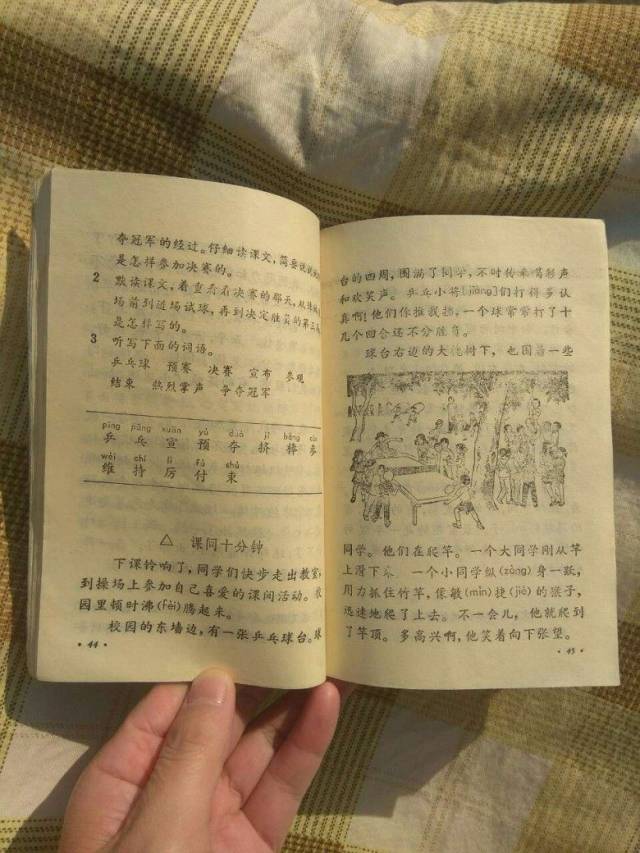 夺冠军的经过。仔细读课文，简要说说
是怎样参加决赛的。
2 默读课文，着重看看决赛的那天，从
场前到进场试球，再到决定胜负的第三局
是怎样写的。
3 听写下面的词语。
乒乓球 预赛 决赛 宣布 参观
结束 热烈掌声 争夺冠军
pīng pāng xuān yù duó jǐ bàng cān
乒 乓 宣 预 夺 挤 棒 参
wéi chí lì fù shù
维 持 厉 付 束
△ 课间十分钟
下课铃响了，同学们快步走出教室，
到操场上参加自己喜爱的课间活动。校
园里顿时沸(fèi)腾起来。
校园的东墙边，有一张乒乓球台。球
·44·
台的四周，围满了同学，不时传来喝彩声
和欢笑声。乒乓小将[jiàng]们打得多认
真啊！他们你推我挡，一个球常常打了十
几个回合还不分胜负。
球台右边的大槐树下，也围着一些
同学。他们在爬竿。一个大同学刚从竿
上滑下来，一个小同学纵(zòng)身一跃，
用力抓住竹竿，像敏(mǐn)捷(jié)的猴子，
迅速地爬了上去。不一会儿，他就爬到
了竿顶。多高兴啊，他笑着向下张望。
·45·